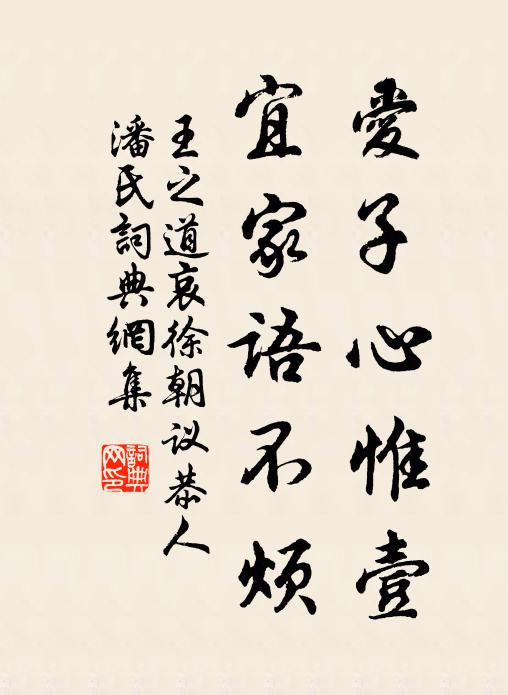 愛子心惟壹
宜家語不煩
王之道哀徐朝议恭人
潘氏詞典網集
詞典网印